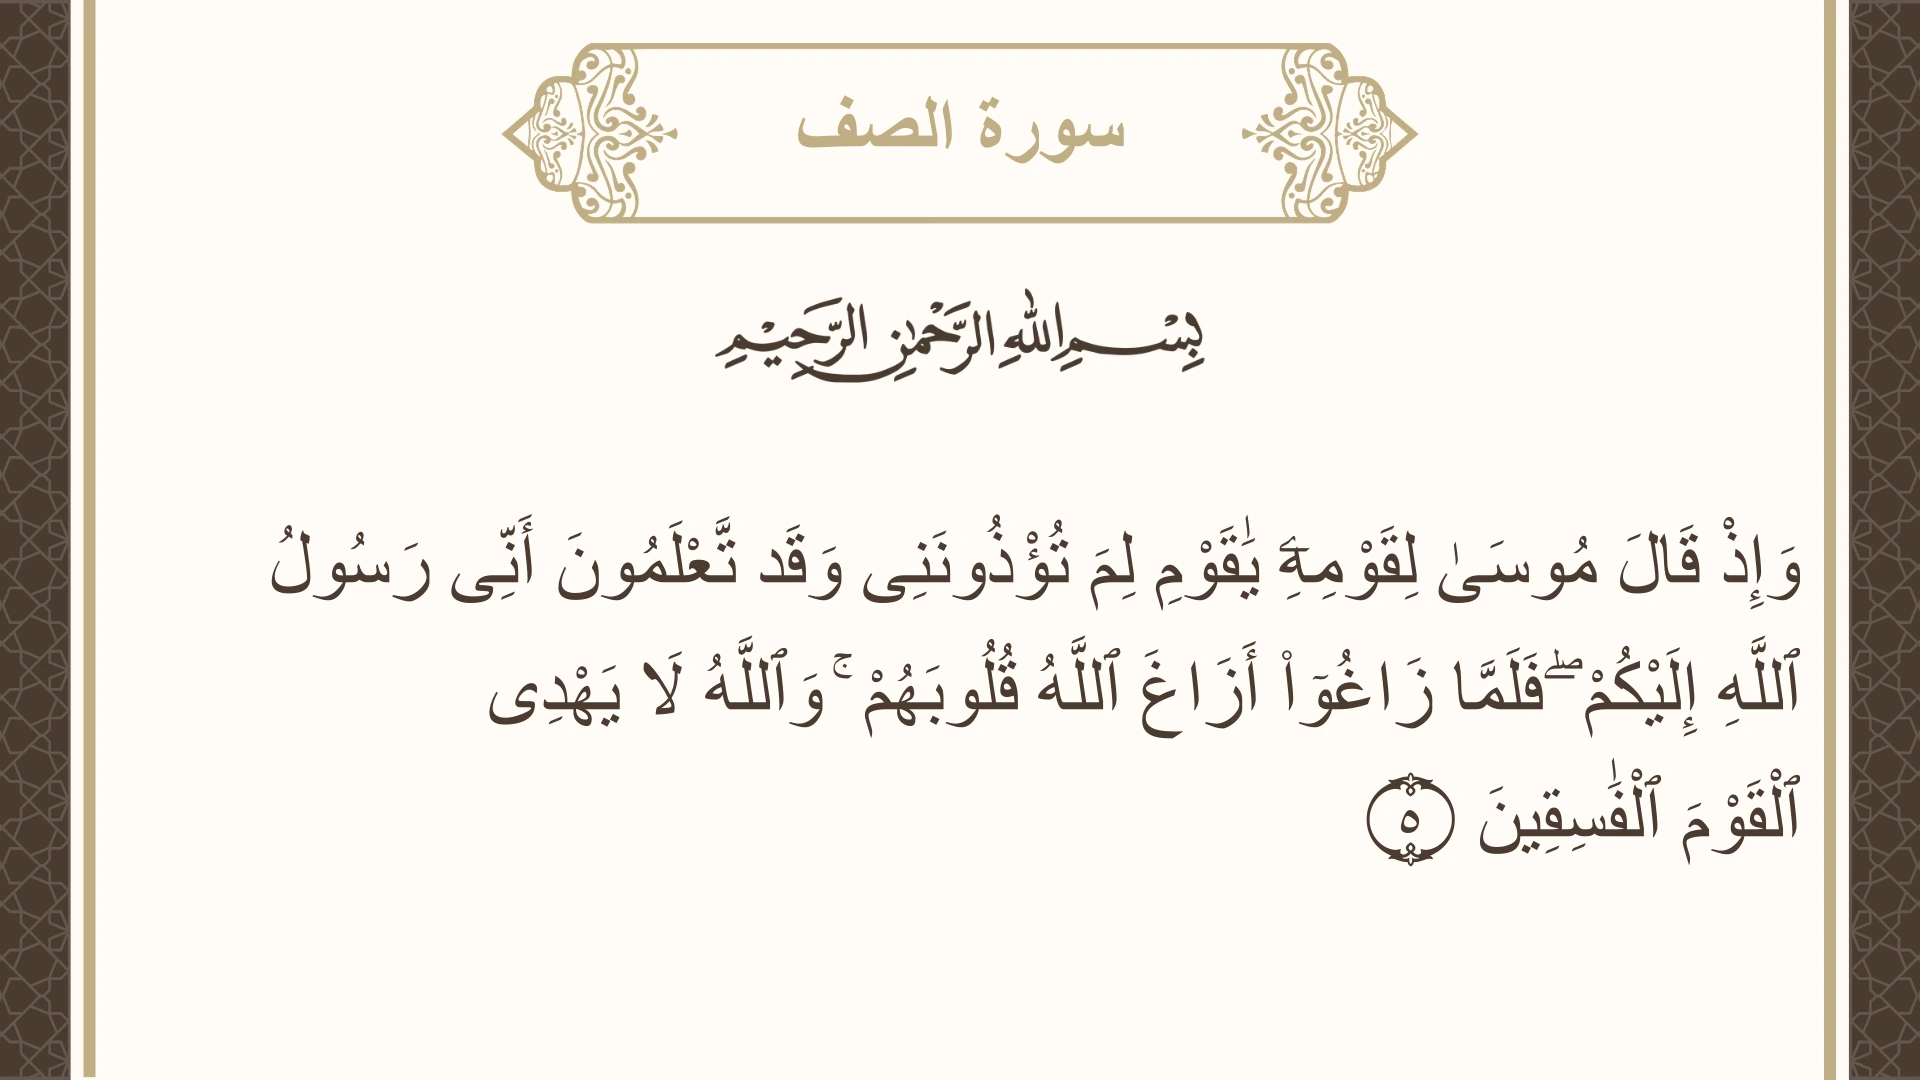 سورة الصف
بِسْمِ اللهِ الرَّحْمٰنِ الرَّحِيْمِ
وَإِذْ قَالَ مُوسَىٰ لِقَوْمِهِۦ يَٰقَوْمِ لِمَ تُؤْذُونَنِى وَقَد تَّعْلَمُونَ أَنِّى رَسُولُ
ٱللَّهِ إِلَيْكُمْ ۖ فَلَمَّا زَاغُوٓا۟ أَزَاغَ ٱللَّهُ قُلُوبَهُمْ ۚ وَٱللَّهُ لَا يَهْدِى
ٱلْقَوْمَ ٱلْفَٰسِقِينَ ٥